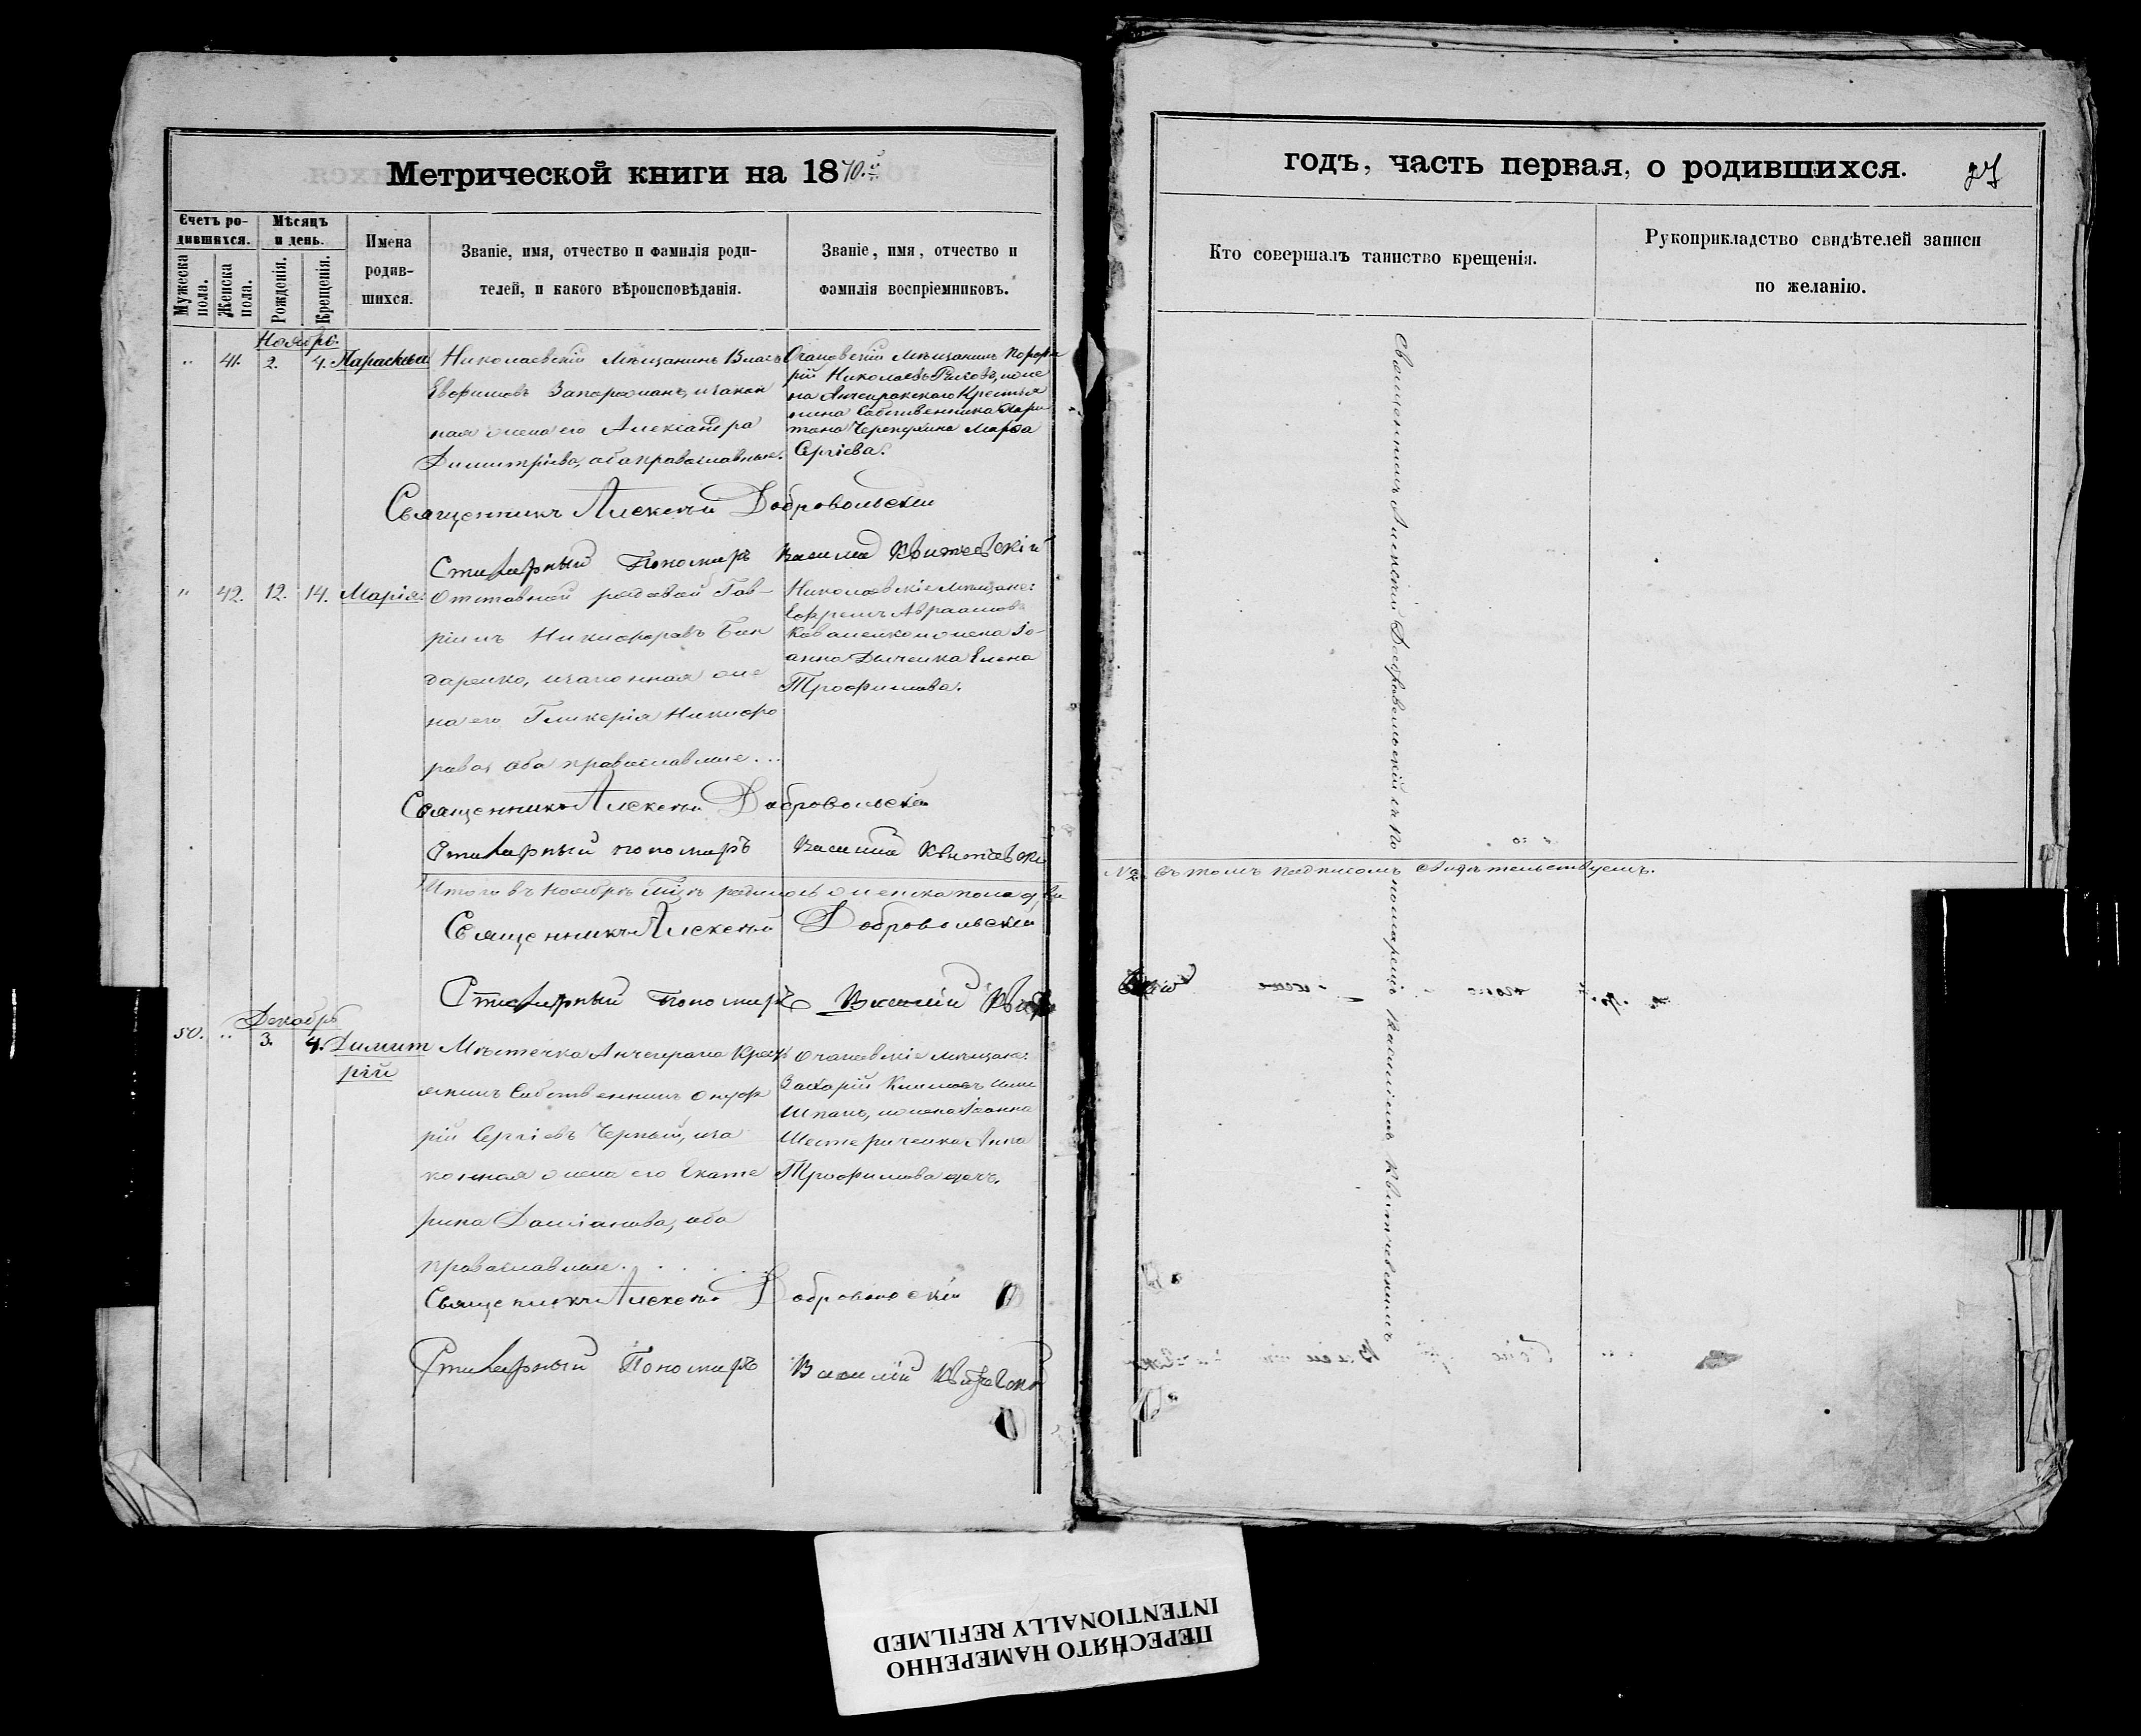 Метрической книги на 1870.й
Счетъ ро-
дившихся.
Мѣсяцъ
и день.
Мужеска
пола.
Женска
пола.
Рожденія.
Крещенія.
Имена
родив-
шихся.
Званіе, имя, отчество и фамилія роди-
телей, и какого вѣроисповѣданія.
Званіе, имя, отчество и
фамилія воспріемниковъ.
Ноябрь.
„ 41. 2. 4. Параскева
Николаевскій мѣщанинъ Власъ
Евфимовъ Запорожанъ, изакон
ная жена его Александра
Димитріева, оба православные.
Очаковскій мѣщанинъ Порфи
рій Николаевъ иже
на Анчекракскаго Крестья
нина Собственника Хари
тона Марѳа
Сергіева.
Священникъ Алексѣй Добровольскій
Стихарный Пономарь Василій Квитчевскій
„ 42. 12. 14. Марія.
Отставной рядовой Гав-
ріилъ Никифоровъ Бон
даренко, изаконная же
на его Гликерія Никифо
рова, оба православные...
Николаевскіе мѣщане:
Ефремъ Авраамовъ
Коваленко и жена Іо-
анна Дьяченка Елена
Трофимова.
Священникъ Алексѣй Добровольскій
Стихарный пономарь Василій Квитчевскій
Итого въ Ноябрѣ м-цѣ родилось женска пола два
Священникъ Алексѣй Добровольскій
Стихарный Пономарь Василій
Декабрь
50. „ 3. 4. Димит
рій
Мѣстечка Анчекрака Крест
янинъ Собственникъ Онуф
рій Сергіевъ Черный, иза
конная жена его Екате
рина Даміанова, оба
православные.
Очаковскіе мѣщане:
Захарій Климовъ
Шпакъ, и жена Іоанна
Шестериченка Анна
Трофимова дочь.
Священникъ Алексѣй Добровольскій
Стихарный Пономарь Василій Квитчевскій
годъ, часть первая, о родившихся.
27
Кто совершалъ таинство крещенія.
Рукоприкладство свидѣтелей записи
по желанію.
Священникъ Алексѣй Добровольскій съ по
номаремъ Василіемъ Квитчевскимъ
въ томъ подписомъ свидѣтельствуемъ.
ПЕРЕСНЯТО НАМЕРЕННО
INTENTIONALLY REFILMED